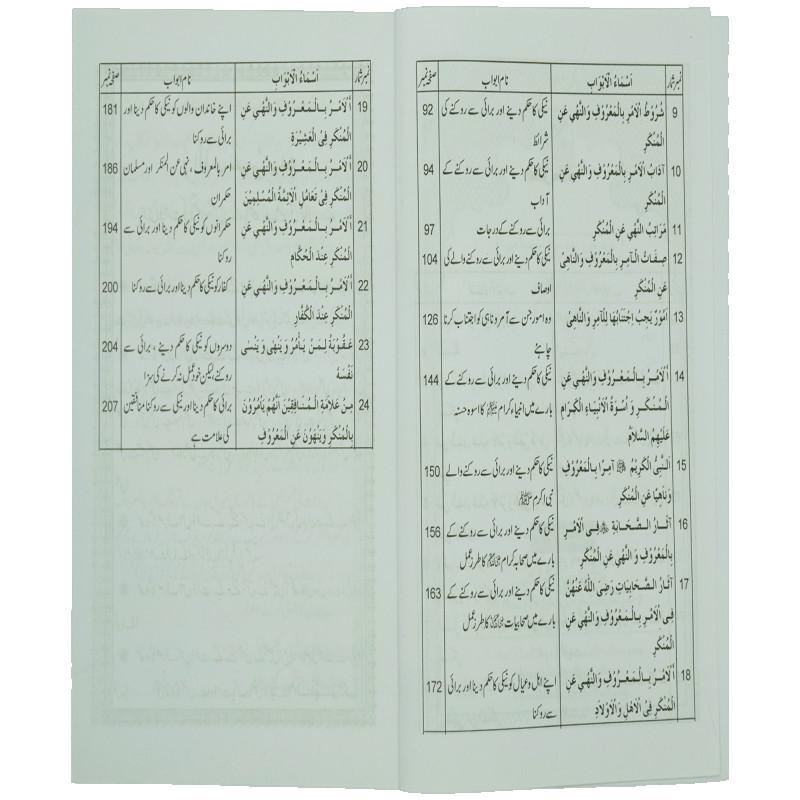 نمبر شمار اَسْمَاءُ الْاَبْوَابِ نام ابواب صفحہ نمبر
9 شُرُوْطُ الْاَمْرِ بِالْمَعْرُوْفِ وَالنَّهْيِ عَنِ نیکی کا حکم دینے اور برائی سے روکنے کی 92
الْمُنْكَرِ شرائط
10 آدَابُ الْاَمْرِ بِالْمَعْرُوْفِ وَالنَّهْيِ عَنِ نیکی کا حکم دینے اور برائی سے روکنے کے 94
الْمُنْكَرِ آداب
11 مَرَاتِبُ النَّهْيِ عَنِ الْمُنْكَرِ برائی سے روکنے کے درجات 97
12 صِفَاتُ الْآمِرِ بِالْمَعْرُوْفِ وَالنَّاهِيْ نیکی کا حکم دینے اور برائی سے روکنے والے کی 104
عَنِ الْمُنْكَرِ اوصاف
13 اُمُوْرٌ يَجِبُ اِجْتِنَابُهَا لِلْآمِرِ وَالنَّاهِيْ وہ امور جن سے آمر و ناہی کو اجتناب کرنا 126
چاہئے
14 اَلْاَمْرُ بِالْمَعْرُوْفِ وَالنَّهْيِ عَنِ نیکی کا حکم دینے اور برائی سے روکنے کے 144
الْمُنْكَرِ وَ اُسْوَةُ الْاَنْبِيَاءِ الْكِرَامِ بارے میں انبیاء کرام کا اسوہ حسنہ
عَلَيْهِمُ السَّلَامُ
15 اَلنَّبِيُّ الْكَرِيْمُ ﷺ آمِرًا بِالْمَعْرُوْفِ نیکی کا حکم دینے اور برائی سے روکنے والے 150
وَنَاهِيًا عَنِ الْمُنْكَرِ نبی اکرم ﷺ
16 آثَارُ الصَّحَابَةِ فِي الْاَمْرِ نیکی کا حکم دینے اور برائی سے روکنے کے 156
بِالْمَعْرُوْفِ وَ النَّهْيِ عَنِ الْمُنْكَرِ بارے میں صحابہ کرام کا طرز عمل
17 آثَارُ الصَّحَابِيَاتِ رَضِيَ اللّٰهُ عَنْهُنَّ نیکی کا حکم دینے اور برائی سے روکنے کے 163
فِي الْاَمْرِ بِالْمَعْرُوْفِ وَالنَّهْيِ عَنِ بارے میں صحابیات کا طرز عمل
الْمُنْكَرِ
18 اَلْاَمْرُ بِالْمَعْرُوْفِ وَالنَّهْيِ عَنِ اپنے اہل و عیال کو نیکی کا حکم دینا اور برائی 172
الْمُنْكَرِ فِي الْاَهْلِ وَالْاَوْلَادِ سے روکنا
نمبر شمار اَسْمَاءُ الْاَبْوَابِ نام ابواب صفحہ نمبر
19 اَلْاَمْرُ بِالْمَعْرُوْفِ وَالنَّهْيِ عَنِ اپنے خاندان والوں کو نیکی کا حکم دینا اور 181
الْمُنْكَرِ فِي الْعَشِيْرَةِ برائی سے روکنا
20 اَلْاَمْرُ بِالْمَعْرُوْفِ وَالنَّهْيِ عَنِ امر بالمعروف ، نہی عن المنکر اور مسلمان 186
الْمُنْكَرِ فِي تَعَامُلِ الْاَئِمَّةِ الْمُسْلِمِيْنَ حکمران
21 اَلْاَمْرُ بِالْمَعْرُوْفِ وَالنَّهْيِ عَنِ حکمرانوں کو نیکی کا حکم دینا اور برائی سے 194
الْمُنْكَرِ عِنْدَ الْحُكَّامِ روکنا
22 اَلْاَمْرُ بِالْمَعْرُوْفِ وَالنَّهْيِ عَنِ کفار کو نیکی کا حکم دینا اور برائی سے روکنا 200
الْمُنْكَرِ عِنْدَ الْكُفَّارِ
23 عُقُوْبَةُ لِمَنْ يَاْمُرُ وَيَنْهٰى وَيَنْسٰى دوسروں کو نیکی کا حکم دینے ، برائی سے 204
نَفْسَهُ روکنے، لیکن خود عمل نہ کرنے کی سزا
24 مِنْ عَلَامَةِ الْمُنَافِقِيْنَ اَنَّهُمْ يَاْمُرُوْنَ برائی کا حکم دینا اور نیکی سے روکنا منافقین 207
بِالْمُنْكَرِ وَيَنْهَوْنَ عَنِ الْمَعْرُوْفِ کی علامت ہے